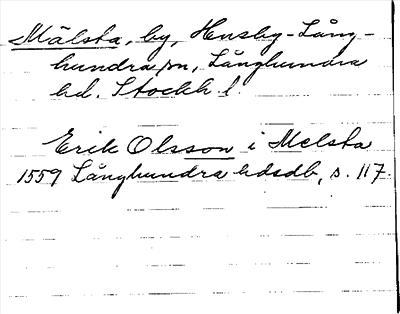 Mälsta, by, Husby-Lång-
hundra sn, Långhundra
hd. Stockh l.
Erik Olsson i Melsta
1559 Långhundra hdsdb, s. 117.